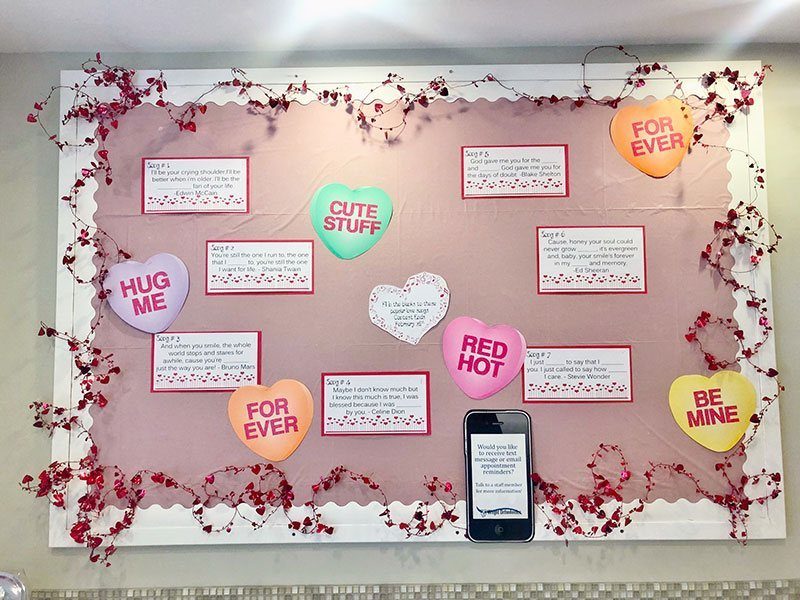 Song # 1
I'll be your crying shoulder,I'll be
better when i'm older, I'll be the
______ fan of your life.
-Edwin McCain
Song # 5
God gave me you for the ______
and ______ God gave me you for
the days of doubt. -Blake Shelton
FOR
EVER
CUTE
STUFF
Song # 2
You're still the one I run to, the one
that I ______ to, you're still the one
I want for life. - Shania Twain
Song # 6
Cause, honey your soul could
never grow ______, it's evergreen
and, baby, your smile's forever
in my ______ and memory.
-Ed Sheeran
HUG
ME
Fill in the blanks to these
popular love songs!
Contest Ends
February
Song # 3
And when you smile, the whole
world stops and stares for
awhile, cause you're ______
just the way you are! - Bruno Mars
RED
HOT
Song # 7
I just ______ to say that I ______
you. I just called to say how ______
I care. - Stevie Wonder
Song # 4
Maybe I don't know much but
I know this much is true, I was
blessed because I was ______
by you. - Celine Dion
FOR
EVER
BE
MINE
Would you like
to receive text
message or email
appointment
reminders?
Talk to a staff member
for more information!